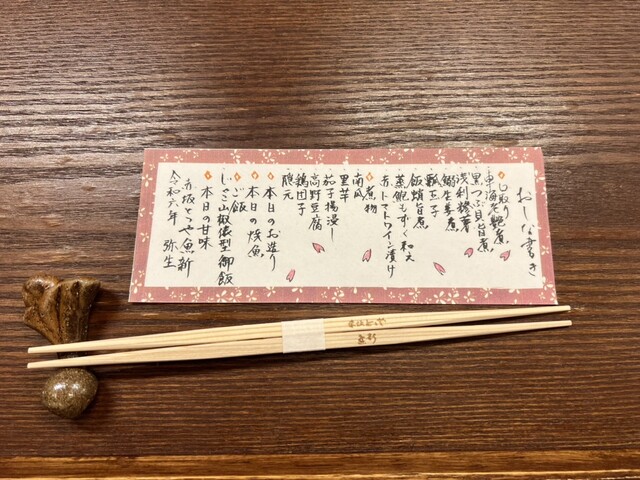 おしな書き
口取り
車海老艶煮
黒つぶ貝旨煮
浅利
鰯生姜煮
瓢玉子
飯蛸旨煮
蒸鮑もずく和え
赤トマトワイン漬け
煮物
南瓜
里芋
茄子揚浸し
高野豆腐
鶏団子
隠元
本日のお造り
本日の焼魚
ご飯
じゃこ山椒俵型御飯
本日の甘味
赤坂とゝや魚新
令和六年 弥生